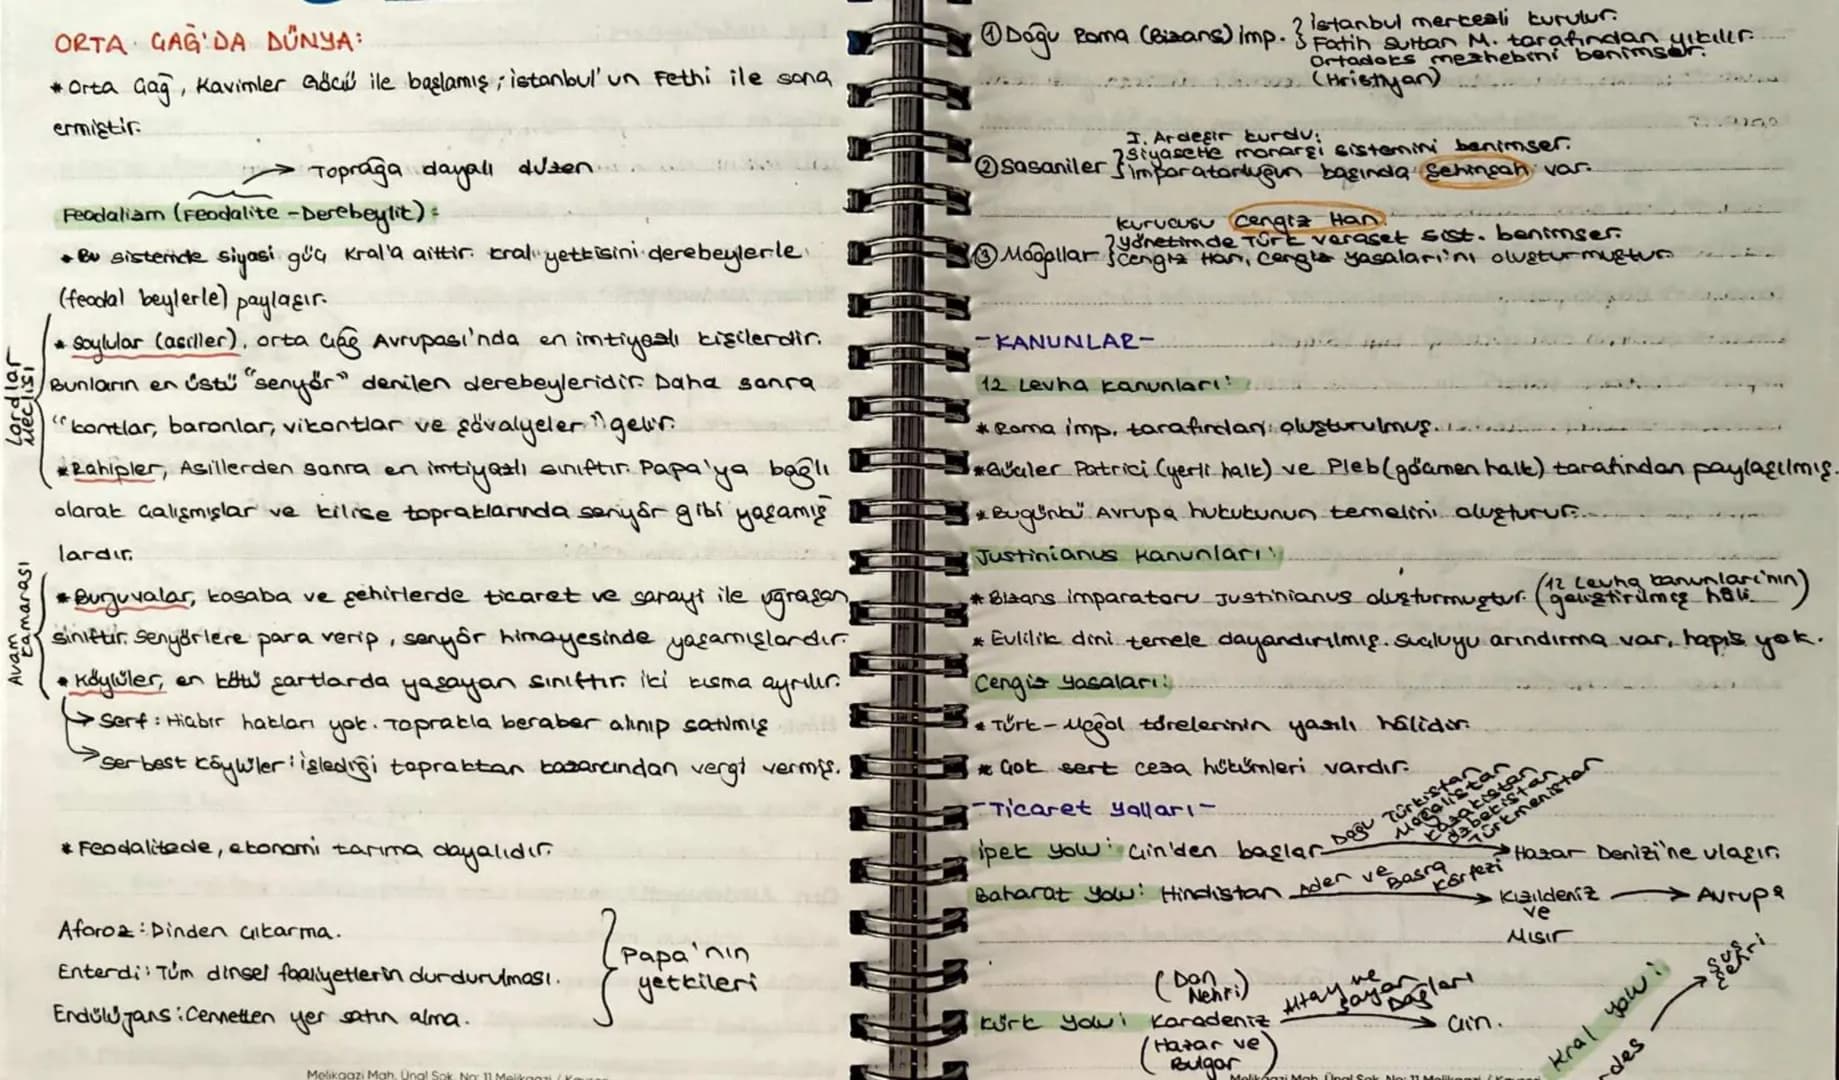 ORTA ÇAĞ'DA DÜNYA:
* Orta Çağ, Kavimler Göçü ile başlamış; İstanbul'un Fethi ile sona
ermiştir.
→ Toprağa dayalı düzen
Feodalizm (Feodalite - Derebeylik):
* Bu sistemde siyasi güç Kral'a aittir. Kral yetkisini derebeylerle
(feodal beylerle) paylaşır.
Lordlar Meclisi
* Soylular (asiller), orta çağ Avrupası'nda en imtiyazlı kişilerdir.
Bunların en üstü "senyör" denilen derebeyleridir. Daha sonra
"kontlar, baronlar, vikontlar ve şövalyeler" gelir.
* Rahipler, Asillerden sonra en imtiyazlı sınıftır. Papa'ya bağlı
olarak çalışmışlar ve kilise topraklarında senyör gibi yaşamış
lardır.
Avam Kamarası
* Burjuvalar, kasaba ve şehirlerde ticaret ve sanayi ile uğraşan
sınıftır. Senyörlere para verip, senyör himayesinde yaşamışlardır.
* Köylüler, en kötü şartlarda yaşayan sınıftır. İki kısma ayrılır.
→ Serf: Hiçbir hakları yok. Toprakla beraber alınıp satılmış
→ Serbest Köylüler: işlediği topraktan kazancından vergi vermiş.
* Feodalitede, ekonomi tarıma dayalıdır.
Aforoz: Dinden çıkarma.
Enterdi: Tüm dinsel faaliyetlerin durdurulması.
Endülüjans: Cennetten yer satın alma.
Papa'nın
yetkileri
Melikgazi Mah. Ünal Sok. No: 11 Melikgazi /
① Doğu Roma (Bizans) imp.
İstanbul merkezli kurulur.
Fatih Sultan M. tarafından yıkılır.
Ortadoks mezhebini benimser.
(Hristiyan)
② Sasaniler
I. Ardeşir kurdu.
Siyasette monarşi sistemini benimser.
İmparatorluğun başında Şehinşah var.
③ Moğollar
Kurucusu Cengiz Han
Yönetimde Türk veraset sist. benimser.
Cengiz Han, Cengiz yasaları'nı oluşturmuştur.
-KANUNLAR-
12 Levha Kanunları:
* Roma imp. tarafından oluşturulmuş.
* Güçler Patrici (yerli halk) ve Pleb (göçmen halk) tarafından paylaşılmış.
* Bugünkü Avrupa hukukunun temelini oluşturur.
Justinianus Kanunları:
* Bizans imparatoru Justinianus oluşturmuştur. (12 Levha kanunları'nın
geliştirilmiş hâli)
* Evlilik dini temele dayandırılmış. Suçluyu arındırma var, hapis yok.
Cengiz Yasaları:
* Türk - Moğol törelerinin yazılı hâlidir.
* Çok sert ceza hükümleri vardır.
-Ticaret Yolları-
İpek Yolu: Çin'den başlar
Doğu Türkistan
Moğolistan
Kazakistan
Özbekistan
Türkmenistan
→ Hazar Denizi'ne ulaşır.
Baharat Yolu: Hindistan
Aden ve
Basra
Körfezi
→ Kızıldeniz
ve
Mısır
→ Avrupa
(Don
Nehri)
Kürk Yolu: Karadeniz
(Hazar ve
Bulgar)
Altay ve
Sayan
Dağları
→ Çin.
Kral Yolu:
→ Sus
Şehri
Melikgazi Mah. Ünal Sok. No: 11 Melikgazi /